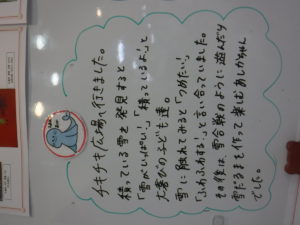 チキチキ広場へ行きました。
積っている雪を発見すると
「雪がいっぱい！」「積っているよ！」と
大喜びの子ども達。
雪に触れてみると「つめたい！
ふわふわする！」と言い合っていました。
午後は、雪合戦のように遊んだり
雪だるまを作って楽しむあしかちゃん
でした。